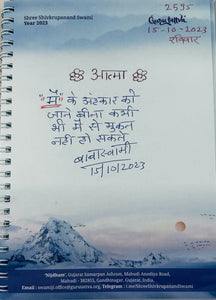 Shree Shivkrupanand Swami
Year 2023
2595
15-10-2023
रविवार
आत्मा
"मैं" के अहंकार को
जाने बीना कभी
भी मैं से मुक्त
नहीं हो सकते
बाबास्वामी
15/10/2023
"Nijdham", Gujarat Samarpan Ashram, Mahudi Anodiya Road,
Mahudi - 382855, Gandhinagar, Gujarat, India.
Email : swamiji.office@gurutattva.org, Telegram : t.me/ShreeShivkrupanandSwami